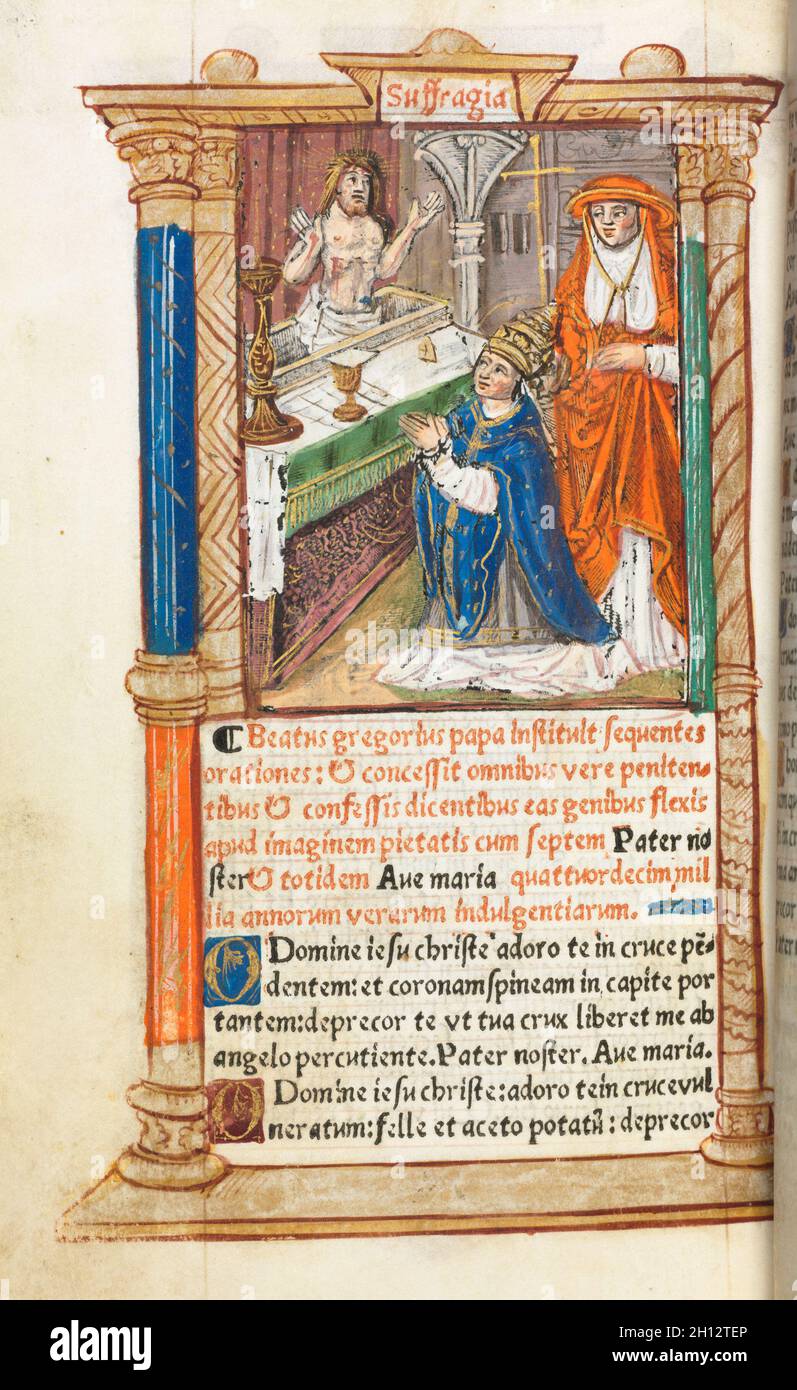 Suffragia
¶ Beatus gregorius papa instituit sequentes
orationes: & concessit omnibus vere peniten-
tibus & confessis dicentibus eas genibus flexis
apud imaginem pietatis cum septem Pater no
ster & totidem Ave maria quattuordecim mil
lia annorum verarum indulgentiarum.
O Domine iesu christe adoro te in cruce pē-
dentem: et coronam spineam in capite por
tantem: deprecor te vt tua crux liberet me ab
angelo percutiente. Pater noster. Ave maria.
O Domine iesu christe: adoro te in cruce vul
neratum: felle et aceto potatū: deprecor
alamy
Image ID: 2H12TEP
www.alamy.com